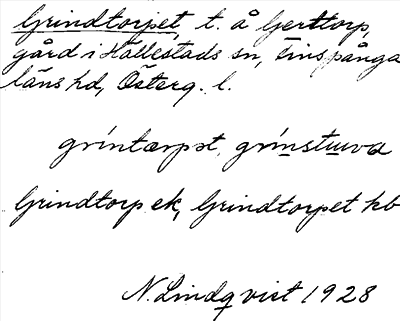 Grindtorpet, t. å Gerttorp,
gård i Hällestads sn, Finspånga
läns hd, Österg. l.
gríntærpət, grínstuwa
Grindtorp ek, Grindtorpet kb
N. Lindqvist 1928